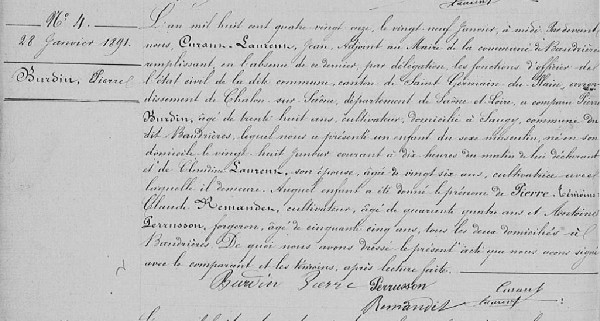 N.º 4.
28 Janvier 1891.
Burdin, Pierre
L'an mil huit cent quatre vingt onze, le vingt neuf Janvier, à midi. Par devant
nous, Curaux-Laurent, Jean, Adjoint au Maire de la commune de Baudrières
remplissant, en l'absence de ce dernier, par délégation, les fonctions d'officier de
l'état civil de la dite commune, canton de Saint Germain du Plain, arron-
dissement de Chalon sur Saône, département de Saône et Loire, a comparu Pierre
Burdin, âgé de trente huit ans, cultivateur, domicilié à commune du
dit Baudrières, lequel nous a présenté un enfant du sexe masculin, né en son
domicile le vingt huit Janvier courant à dix heures du matin de lui déclarant
et de Claudine Laurent, son épouse, âgée de vingt six ans, cultivatrice avec
laquelle il demeure. Auquel enfant a été donné le prénom de Pierre. Témoins:
Claude Remandet, cultivateur, âgé de quarante quatre ans et Antoine
Perrusson, forgeron, âgé de cinquante cinq ans, tous les deux domiciliés à
Baudrières. De quoi nous avons dressé le présent acte que nous avons signé
avec le comparant et les témoins, après lecture faite.
Burdin Pierre Perrusson
Remandet